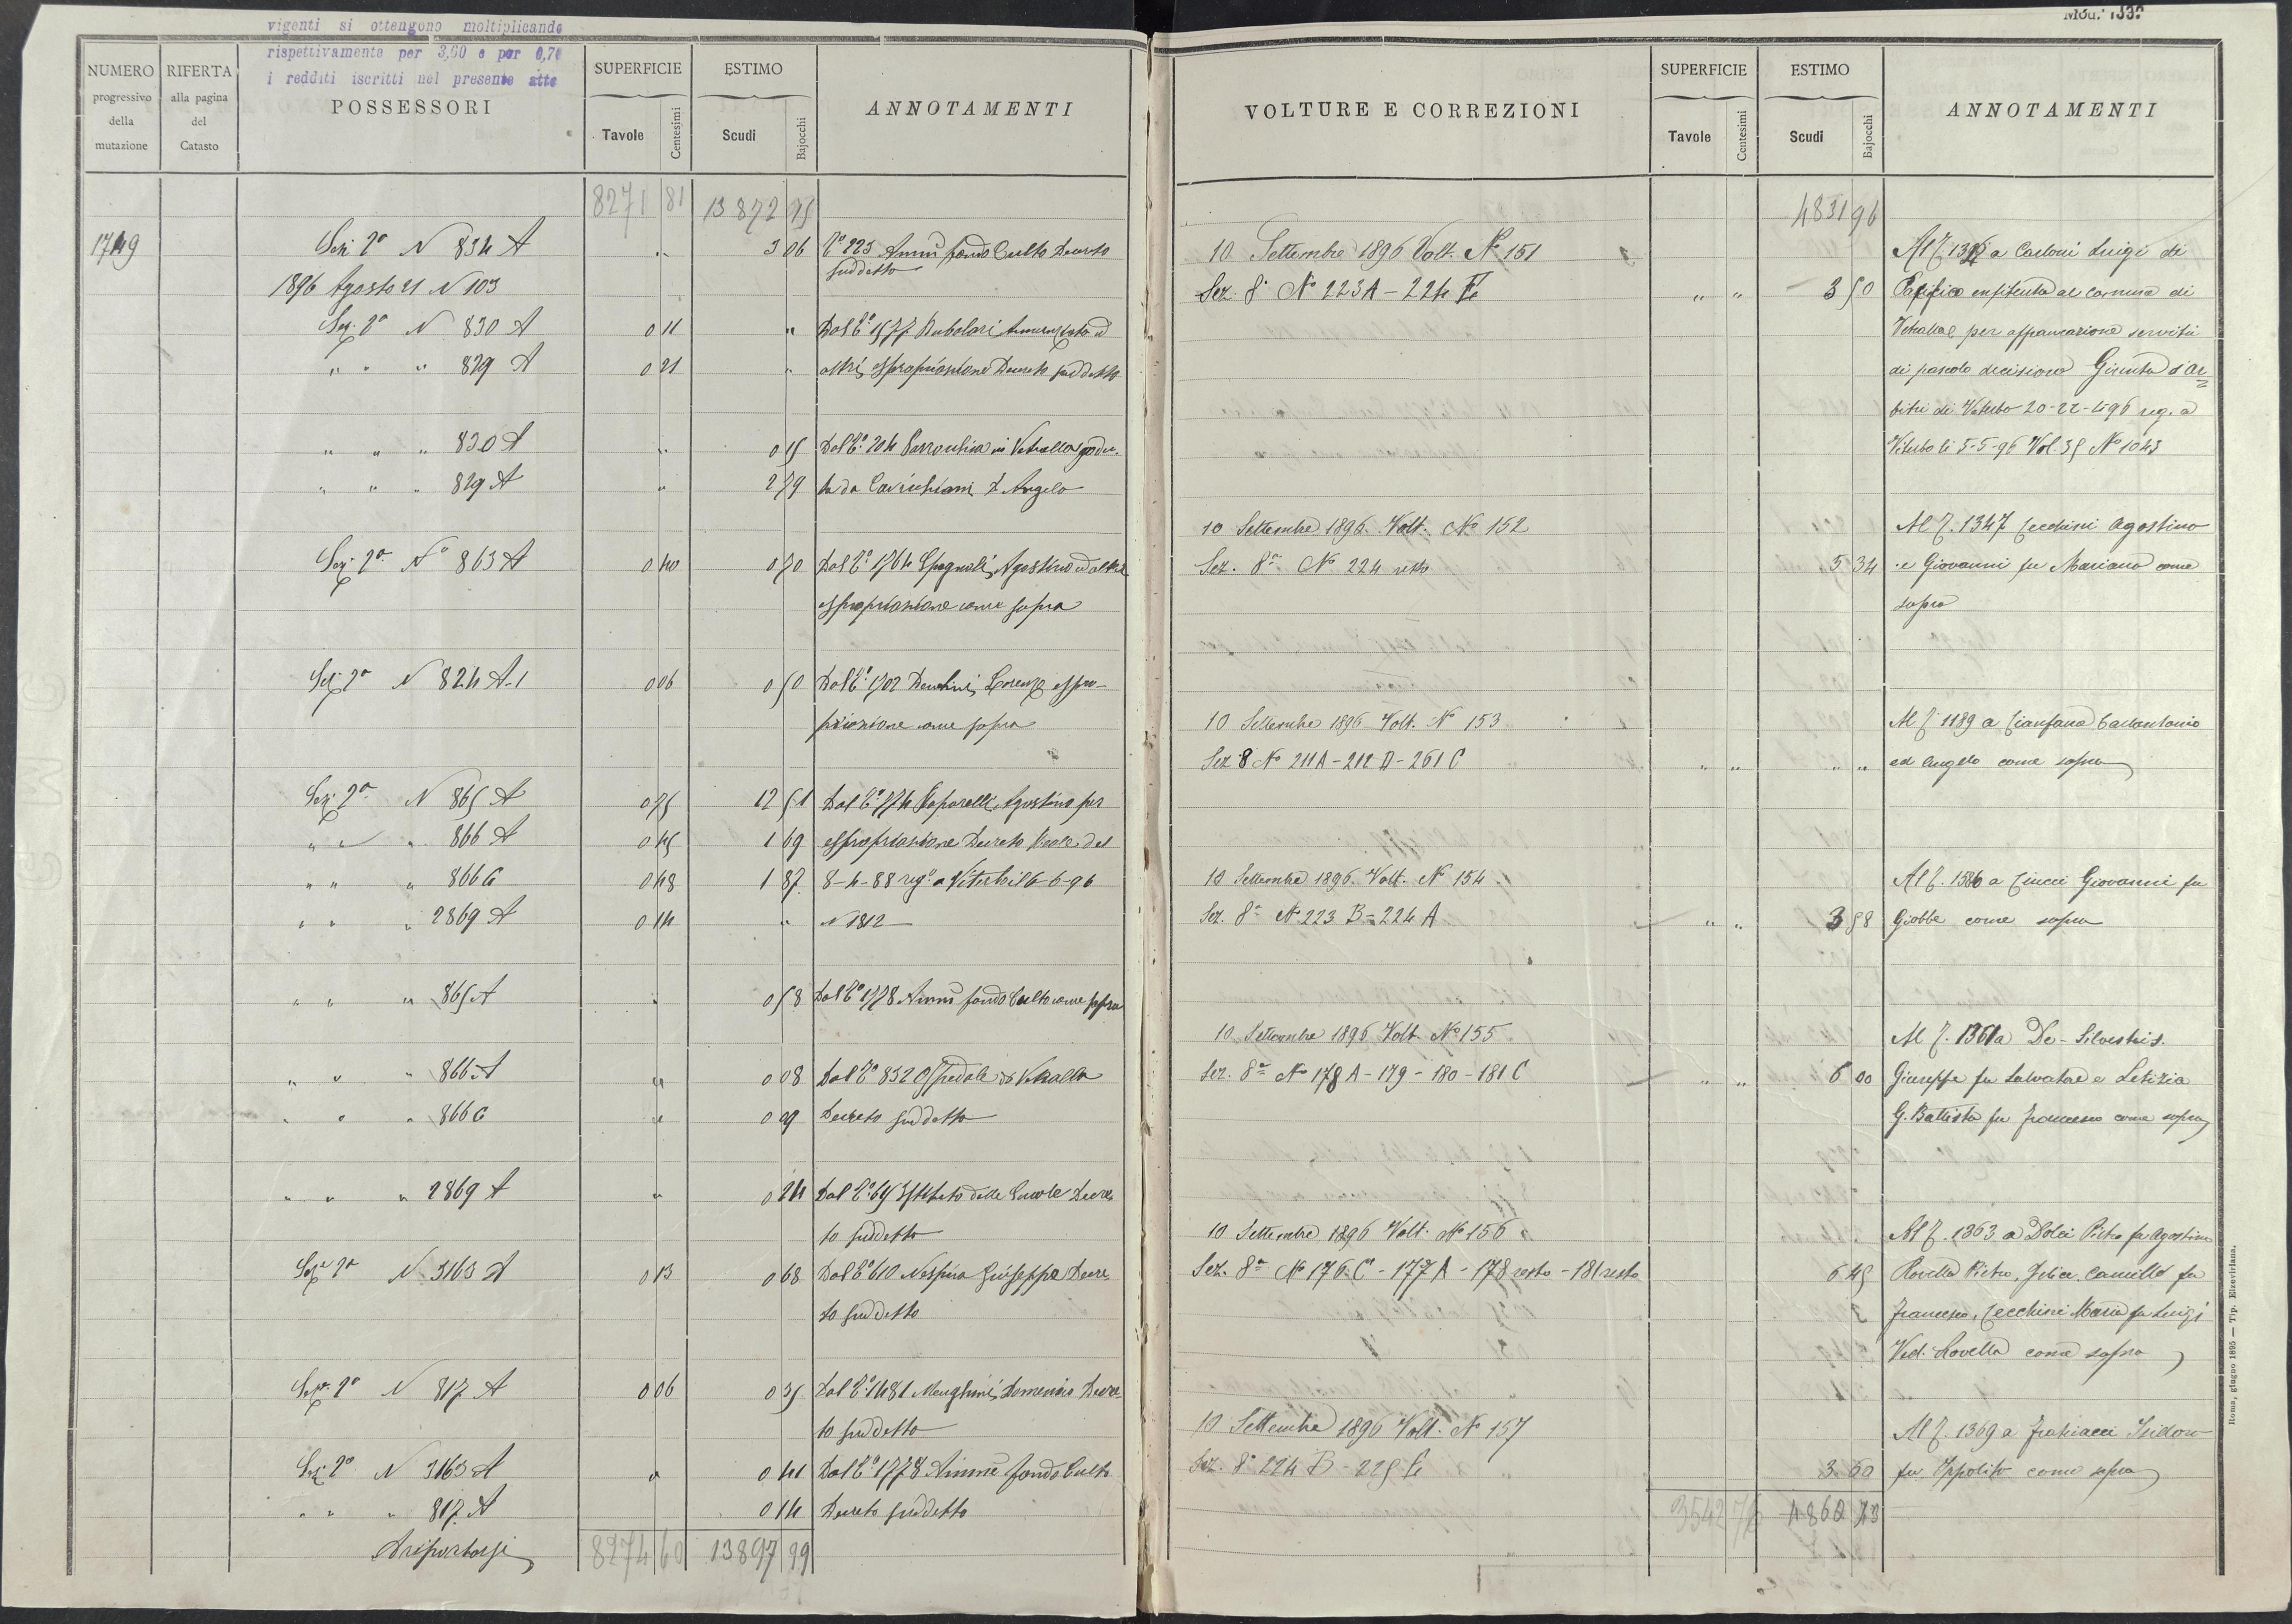 vigenti si ottengono moltiplicando
rispettivamente per 3,60 e per 0,70
i redditi iscritti nel presente atto
NUMERO progressivo della mutazione
RIFERTA alla pagina del Catasto
POSSESSORI
SUPERFICIE
Tavole Centesimi
ESTIMO
Scudi Bajocchi
ANNOTAMENTI
8271 81 13872 95
1749 Sez 2a N 834 A " 3 06 Ca 223 Ammi fondo Culto Decreto
suddetto
1896 Agosto 21 N 103
Sez. 2a N 830 A 0 11 " Dal Ca 1577 Annunziata ed
" " " 829 A 0 21 " altri espropriazione Decreto suddetto
" " " 830 A " 0 15 Dal Ca 204 Parrocchia in Vetralla godu-
" " " 829 A " 2 79 ta da D. Angelo
Sez. 2a No 863 A 0 40 0 70 Dal Ca 1764 Spagnoli Agostino ed altri
espropriazione come sopra
Sez. 2a N 824 A-1 0 06 0 50 Dal Ca 1702 Lorenzo espro-
priazione come sopra
Sez. 2a N 865 A 0 75 12 51 Dal Ca 774 Paparelli Agostino per
" " " 866 A 0 45 1 69 espropriazione Decreto Reale del
" " " 866 C 0 48 1 87 8-4-88 rego a Viterbo il 6-6-96
" " " 2869 A 0 14 " N 1812
" " " 865 A " 0 58 Dal Ca 1778 Ammi fondo Culto come sopra
" " " 866 A " 0 08 Dal Ca 832 Ospedale di Vetralla
" " " 866 C " 0 09 Decreto suddetto
" " " 2869 A " 0 24 Dal Ca 69 Istituto delle Scuole Decre
to suddetto
Sez. 2a N. 3163 A 0 13 0 68 Dal Ca 610 Nespica Giuseppa Decre
to suddetto
Sez. 2a N 817 A 0 06 0 35 Dal Ca 1481 Menghini Domenico Decre
to suddetto
Sez. 2a N 3163 A " 0 41 Dal Ca 1778 Ammi fondo Culto
" " " 817 A 0 14 Decreto suddetto
A riportarsi 8274 60 13897 99
Mod. 133
VOLTURE E CORREZIONI
SUPERFICIE
Tavole Centesimi
ESTIMO
Scudi Bajocchi
ANNOTAMENTI
4831 96
10 Settembre 1896 Volt. No 151 Al C. a Carloni Luigi di
Sez. 8a No 223 A - 224 " " 3 50 Pacifico enfiteuta al Comune di
Vetralla per affrancazione servitù
di pascolo decisione Giunta d'ar
bitri di Viterbo 20-22-4-96 reg. a
Viterbo li 5-5-96 Vol. 35 No 1043
10 Settembre 1896. Volt. No 152 Al C. 1347 Cecchini Agostino
Sez. 8a No 224 resto 5 34 e Giovanni fu Mariano come
sopra
10 Settembre 1896 Volt. No 153 Al C. 1189 a Cianfana
Sez 8 No 211 A - 212 D - 261 C " " " " ed Angelo come sopra
10 Settembre 1896. Volt. No 154 Al C. 1586 a Ciucci Giovanni fu
Sez. 8a No 223 B - 224 A " " 3 58 Giobbe come sopra
10 Settembre 1896 Volt. No 155 Al C. 1361 a De-Silvestris
Sez. 8a No 178 A - 179 - 180 - 181 C " " 6 00 Giuseppe fu Salvatore e Letizia
G. Battista fu Francesco come sopra
10 Settembre 1896 Volt. No 156 Al C. 1363 a Dolci Pietro fu Agostino
Sez. 8a No 176 C - 177 A - 178 resto - 181 resto 6 45 Rovella Pietro, Felice, Camillo fu
Francesco, Cecchini Maria fu Luigi
Ved. Rovella come sopra
10 Settembre 1896 Volt. No 157 Al C. 1369 a Isidoro
Sez. 8a 224 B - 225 3 60 fu Ippolito come sopra
3542 76 4860 43
Roma, giugno 1895 — Tip. Elzeviriana.